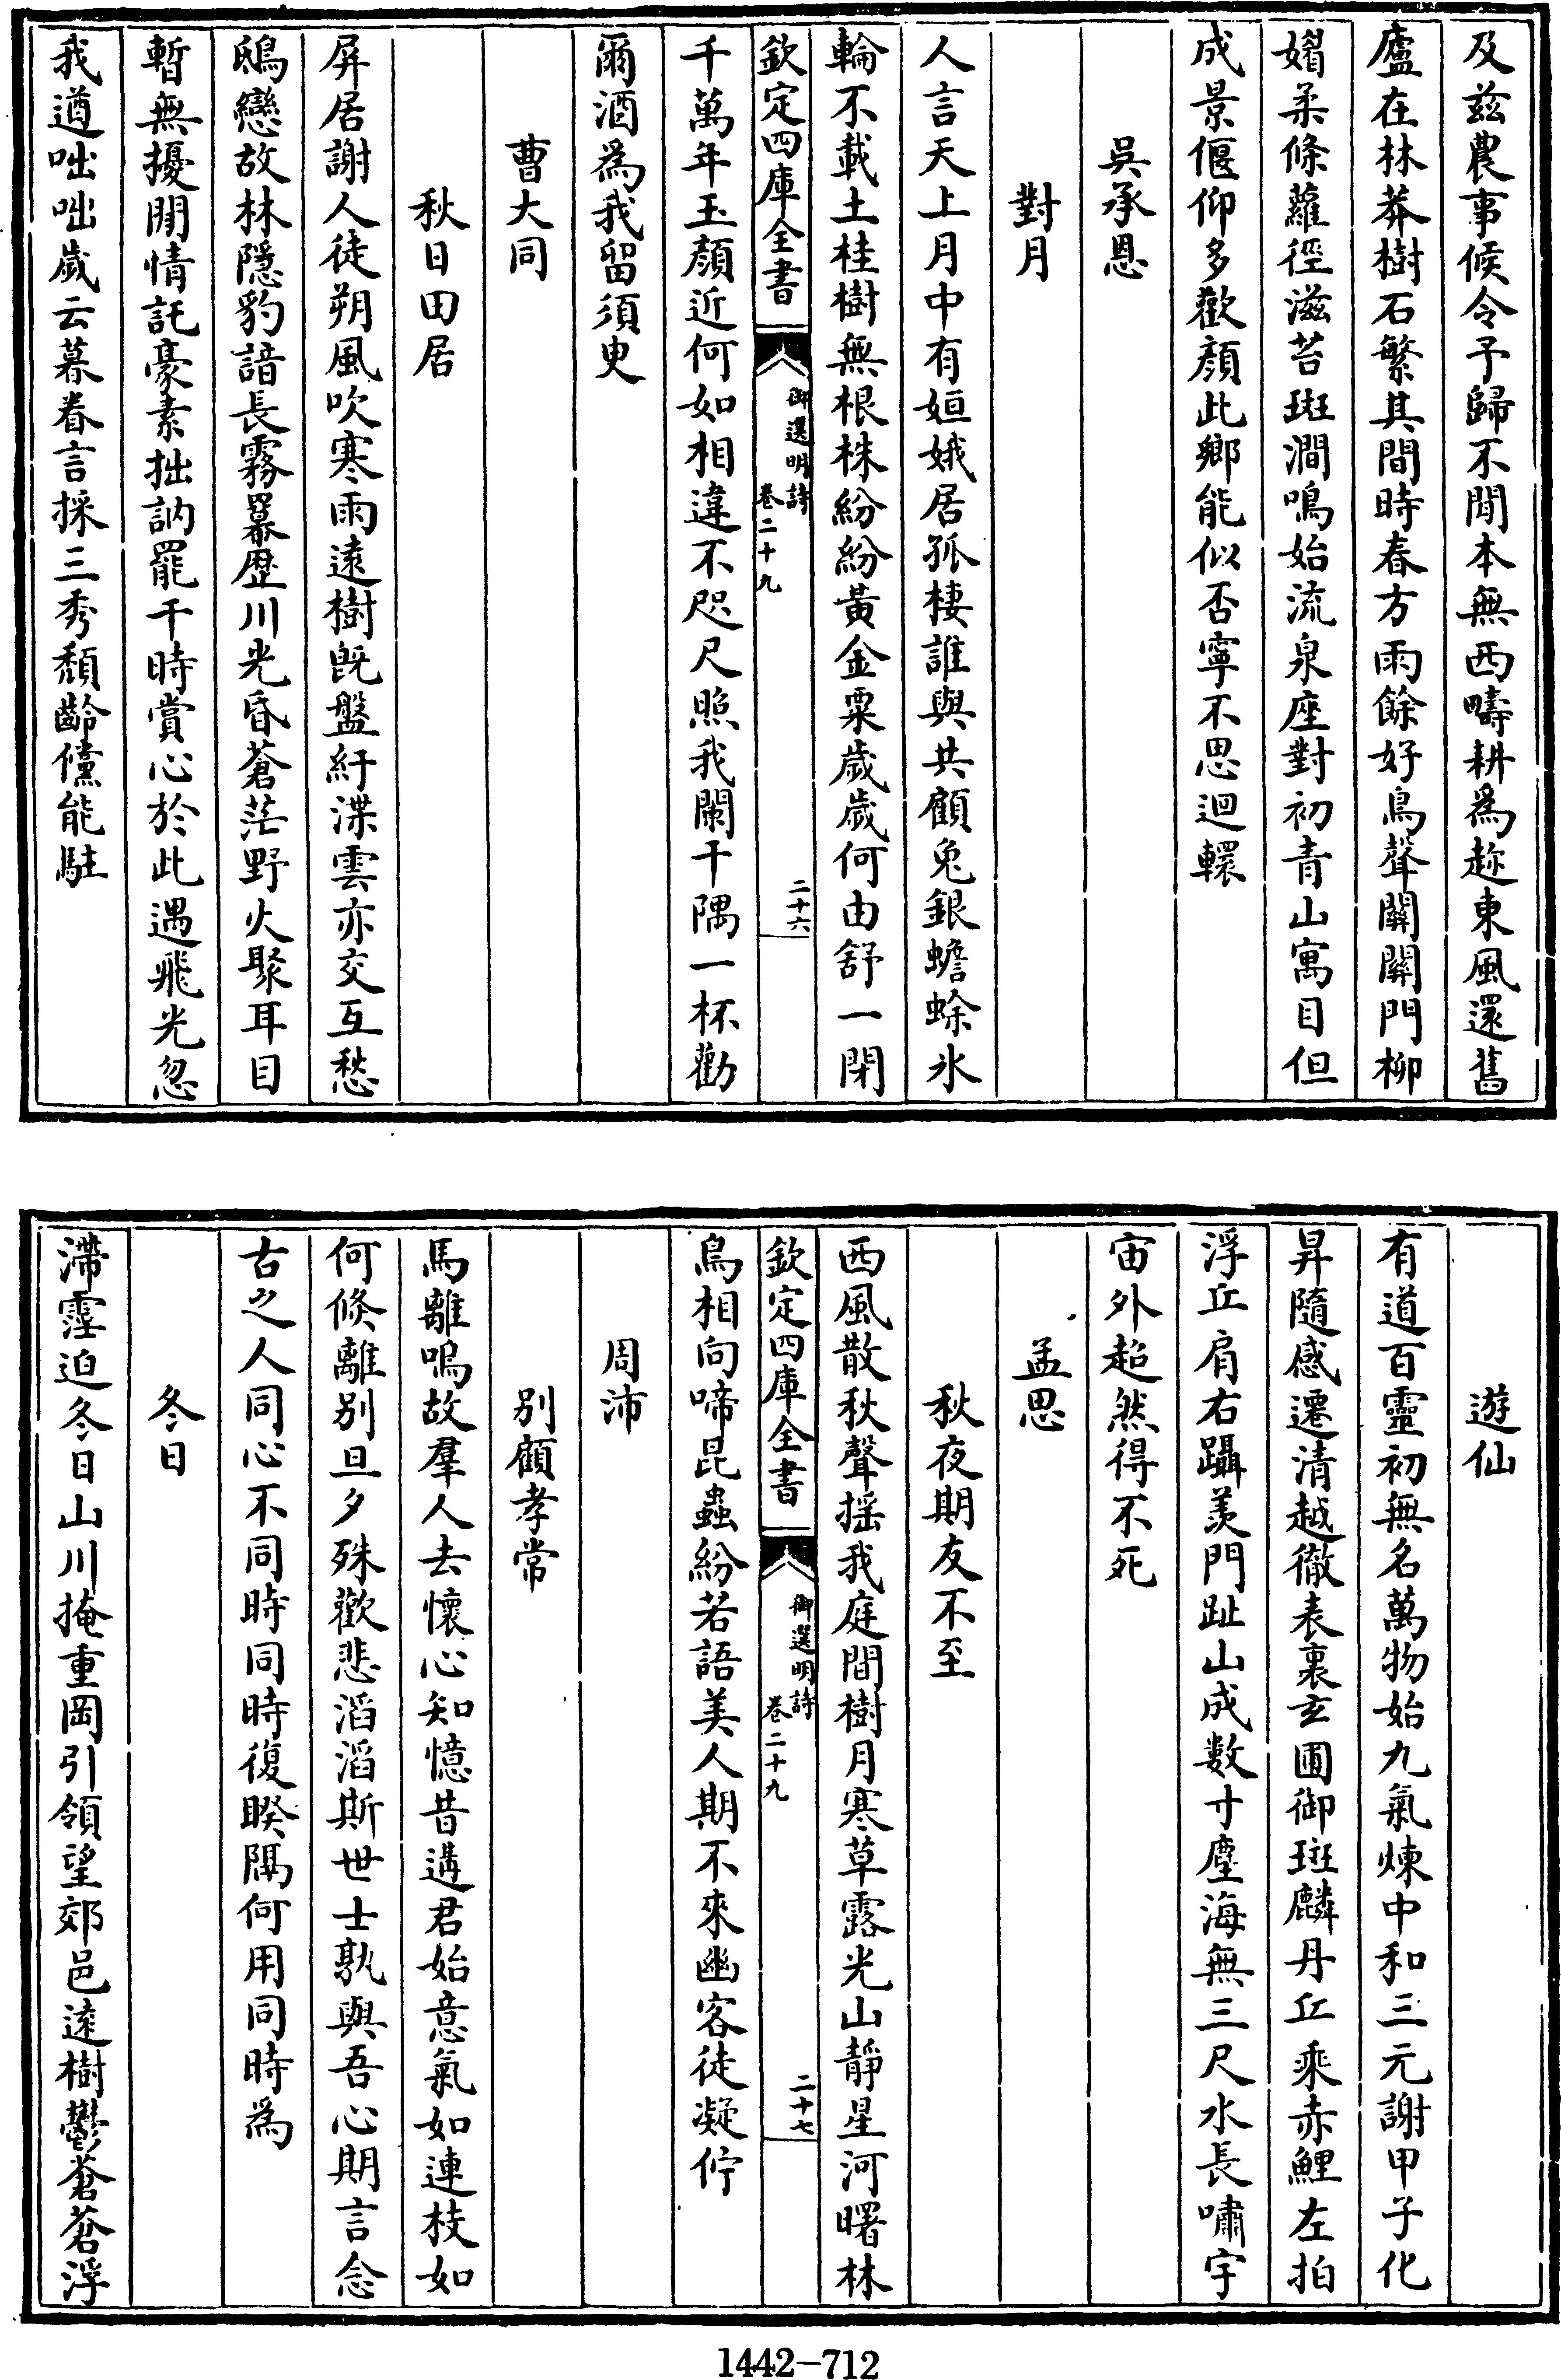 及兹農事候令予歸不閒本無西疇耕爲趂東風還舊
廬在林莽樹石繁其間時春方雨餘好鳥聲關關門柳
媚柔條蘿徑滋苔斑澗鳴始流泉座對初青山寓目但
成景偃仰多歡顏此鄉能似否寧不思迴轘
吳承恩
對月
人言天上月中有姮娥居孤棲誰與共顧兔銀蟾蜍氷
輪不載土桂樹無根株紛紛黃金粟歲歲何由舒一閉
欽定四庫全書
御選明詩
卷二十九
二十六
千萬年玉顏近何如相違不咫尺照我闌干隅一杯勸
爾酒爲我留須臾
曹大同
秋日田居
屏居謝人徒朔風吹寒雨遠樹旣盤紆渫雲亦交互愁
鴟戀故林隱豹諳長霧羃歷川光昏蒼茫野火聚耳目
暫無擾閒情託豪素拙訥罷干時賞心於此遇飛光忽
我遒咄咄歲云暮眷言採三秀頹齡儻能駐
遊仙
有道百靈初無名萬物始九氣煉中和三元謝甲子化
昇隨感遷清越徹表裏玄圃御斑麟丹丘乘赤鯉左拍
浮丘肩右躡羨門趾山成數寸塵海無三尺水長嘯宇
宙外超然得不死
孟思
秋夜期友不至
西風散秋聲揺我庭間樹月寒草露光山靜星河曙林
欽定四庫全書
御選明詩
卷二十九
二十七
鳥相向啼昆蟲紛若語美人期不來幽客徒凝佇
周沛
別顧孝常
馬離鳴故羣人去懷心知憶昔遘君始意氣如連枝如
何倏離別旦夕殊歡悲滔滔斯世士孰與吾心期言念
古之人同心不同時同時復睽隔何用同時爲
冬日
滯霪迫冬日山川掩重岡引領望郊邑遠樹鬱蒼蒼浮
1442-712